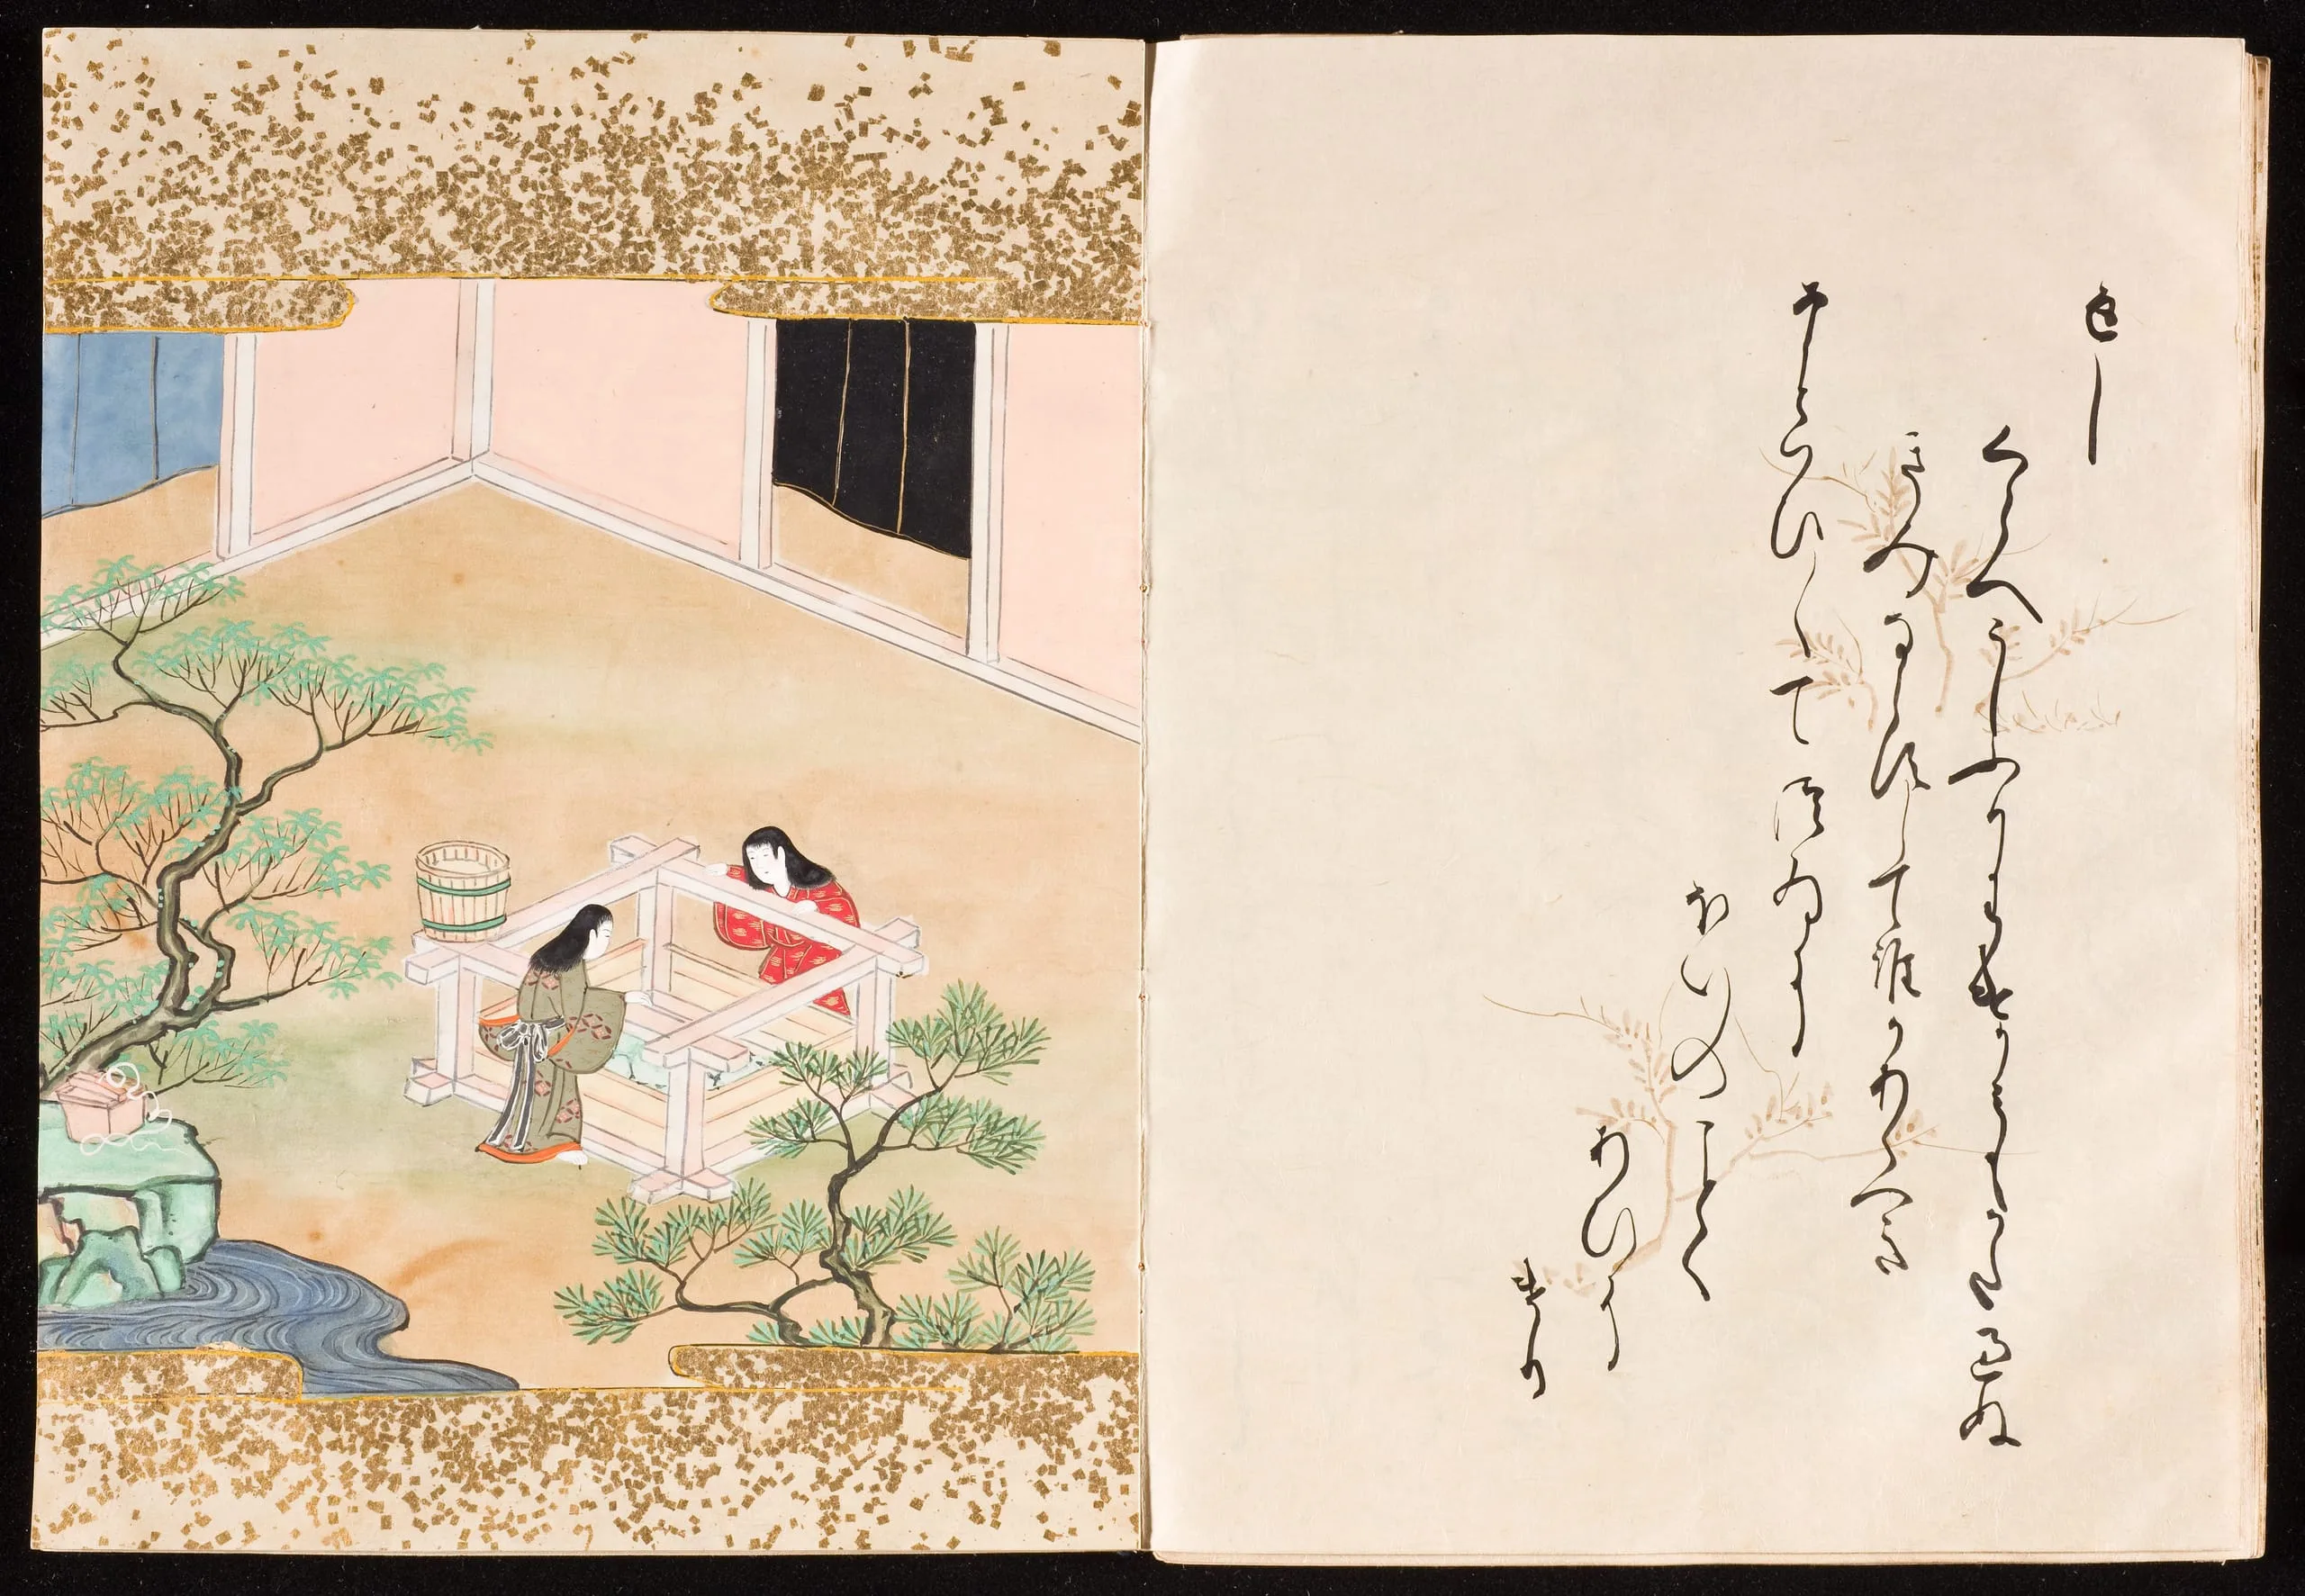 返し
くらへこしふりわけかみもかた過ぬ
きみならすして誰かあくへき
なといひ〱てつゐに
ほいのことく
あひに
けり